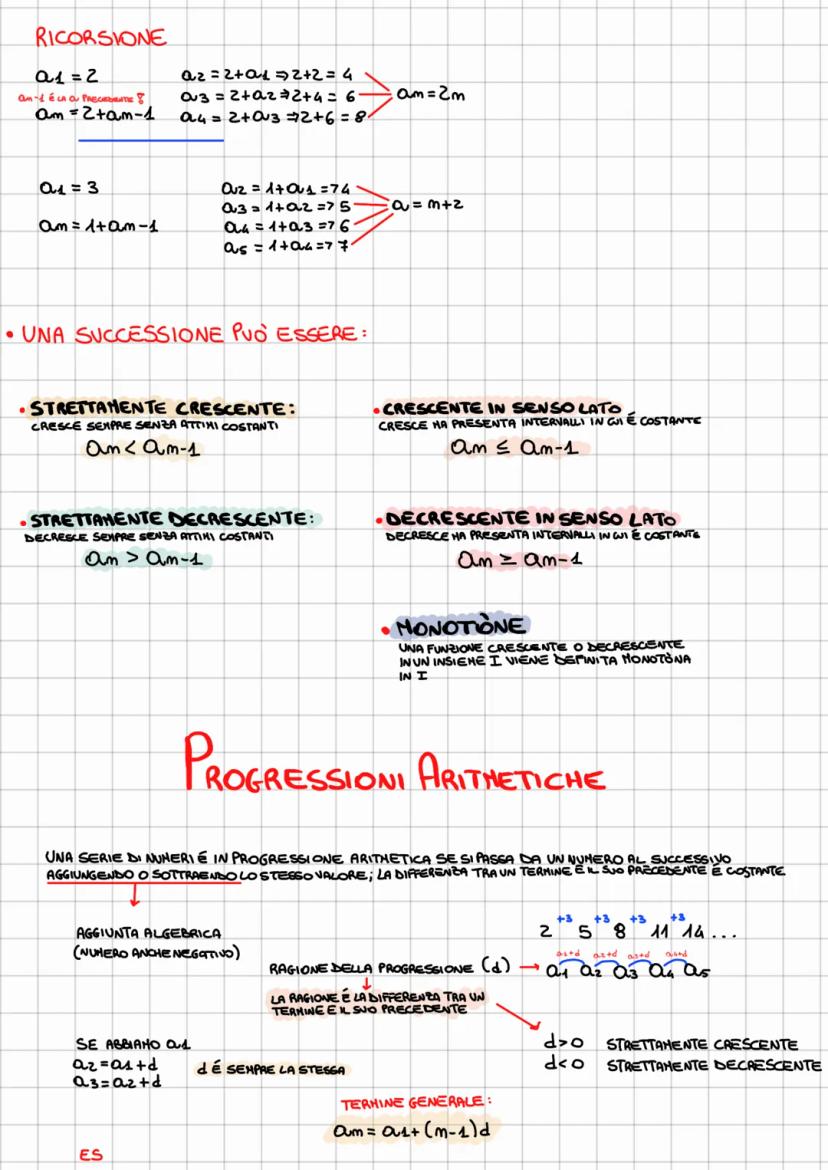 RICORSIONE
a1 = 2
a2 = 2+a1 ⇒ 2+2 = 4
am-1 É LA a PRECEDENTE!
a3 = 2+a2 ⇒ 2+4 = 6
am = 2m
am = 2+am-1
a4 = 2+a3 ⇒ 2+6 = 8
a1 = 3
a2 = 1+a1 =74
a3 = 1+a2 =7 5
a = m+2
am = 1+am-1
a4 = 1+a3 =7 6
a5 = 1+a4 =7 7
• UNA SUCCESSIONE PUÒ ESSERE:
• STRETTAMENTE CRESCENTE:
CRESCE SEMPRE SENZA ATTIMI COSTANTI
am < am-1
• CRESCENTE IN SENSO LATO
CRESCE MA PRESENTA INTERVALLI IN CUI É COSTANTE
am ≤ am-1
• STRETTAMENTE DECRESCENTE:
DECRESCE SEMPRE SENZA ATTIMI COSTANTI
am > am-1
• DECRESCENTE IN SENSO LATO
DECRESCE MA PRESENTA INTERVALLI IN CUI É COSTANTE
am ≥ am-1
• MONOTIÒNE
UNA FUNZIONE CRESCENTE O DECRESCENTE
IN UN INSIEME I VIENE DEFINITA MONOTÒNA
IN I
PROGRESSIONI ARITMETICHE
UNA SERIE DI NUMERI É IN PROGRESSIONE ARITMETICA SE SI PASSA DA UN NUMERO AL SUCCESSIVO
AGGIUNGENDO O SOTTRAENDO LO STESSO VALORE; LA DIFFERENZA TRA UN TERMINE E IL SUO PRECEDENTE É COSTANTE
AGGIUNTA ALGEBRICA
(NUMERO ANCHE NEGATIVO)
+3 +3 +3 +3
2 5 8 11 14 ...
RAGIONE DELLA PROGRESSIONE (d) →
a1+d a2+d a3+d a4+d
a1 a2 a3 a4 a5
LA RAGIONE É LA DIFFERENZA TRA UN
TERMINE E IL SUO PRECEDENTE
SE ABBIAMO a1
a2=a1+d
a3=a2+d
d É SEMPRE LA STESSA
d>0 STRETTAMENTE CRESCENTE
d<0 STRETTAMENTE DECRESCENTE
TERMINE GENERALE:
am = a1+(m-1)d
ES